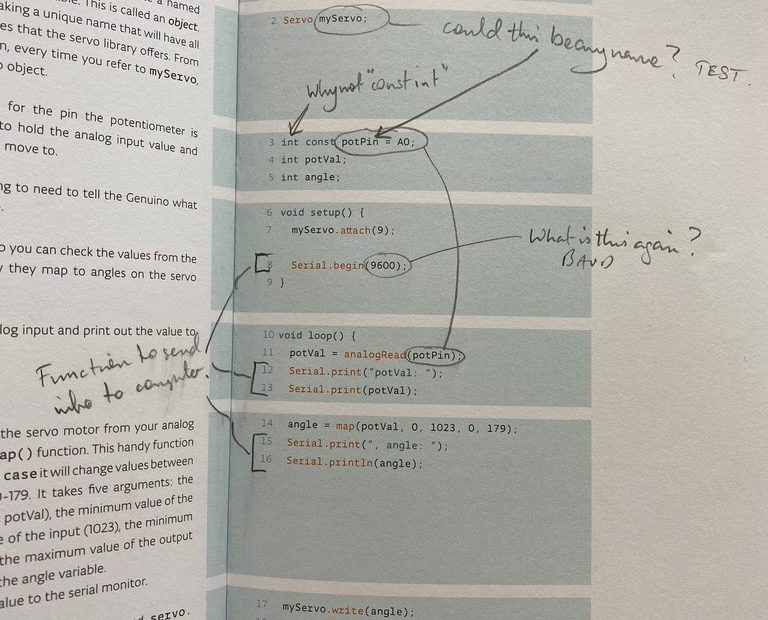 is called an object.
aking a unique name that will have all
es that the servo library offers. From
n, every time you refer to myServo,
o object.
for the pin the potentiometer is
to hold the analog input value and
move to.
ng to need to tell the Genuino what
o you can check the values from the
y they map to angles on the servo
log input and print out the value to
Function to send
info to computer.
the servo motor from your analog
ap() function. This handy function
case it will change values between
0-179. It takes five arguments: the
potVal), the minimum value of the
e of the input (1023), the minimum
the maximum value of the output
the angle variable.
alue to the serial monitor.
servo.
2 Servo myServo;
could this be any name? TEST.
why not "const int"
3 int const potPin = A0;
4 int potVal;
5 int angle;
6 void setup() {
7 myServo.attach(9);
What is this again?
BAUD
8 Serial.begin(9600);
9 }
10 void loop() {
11 potVal = analogRead(potPin);
12 Serial.print("potVal: ");
13 Serial.print(potVal);
14 angle = map(potVal, 0, 1023, 0, 179);
15 Serial.print(", angle: ");
16 Serial.println(angle);
17 myServo.write(angle);